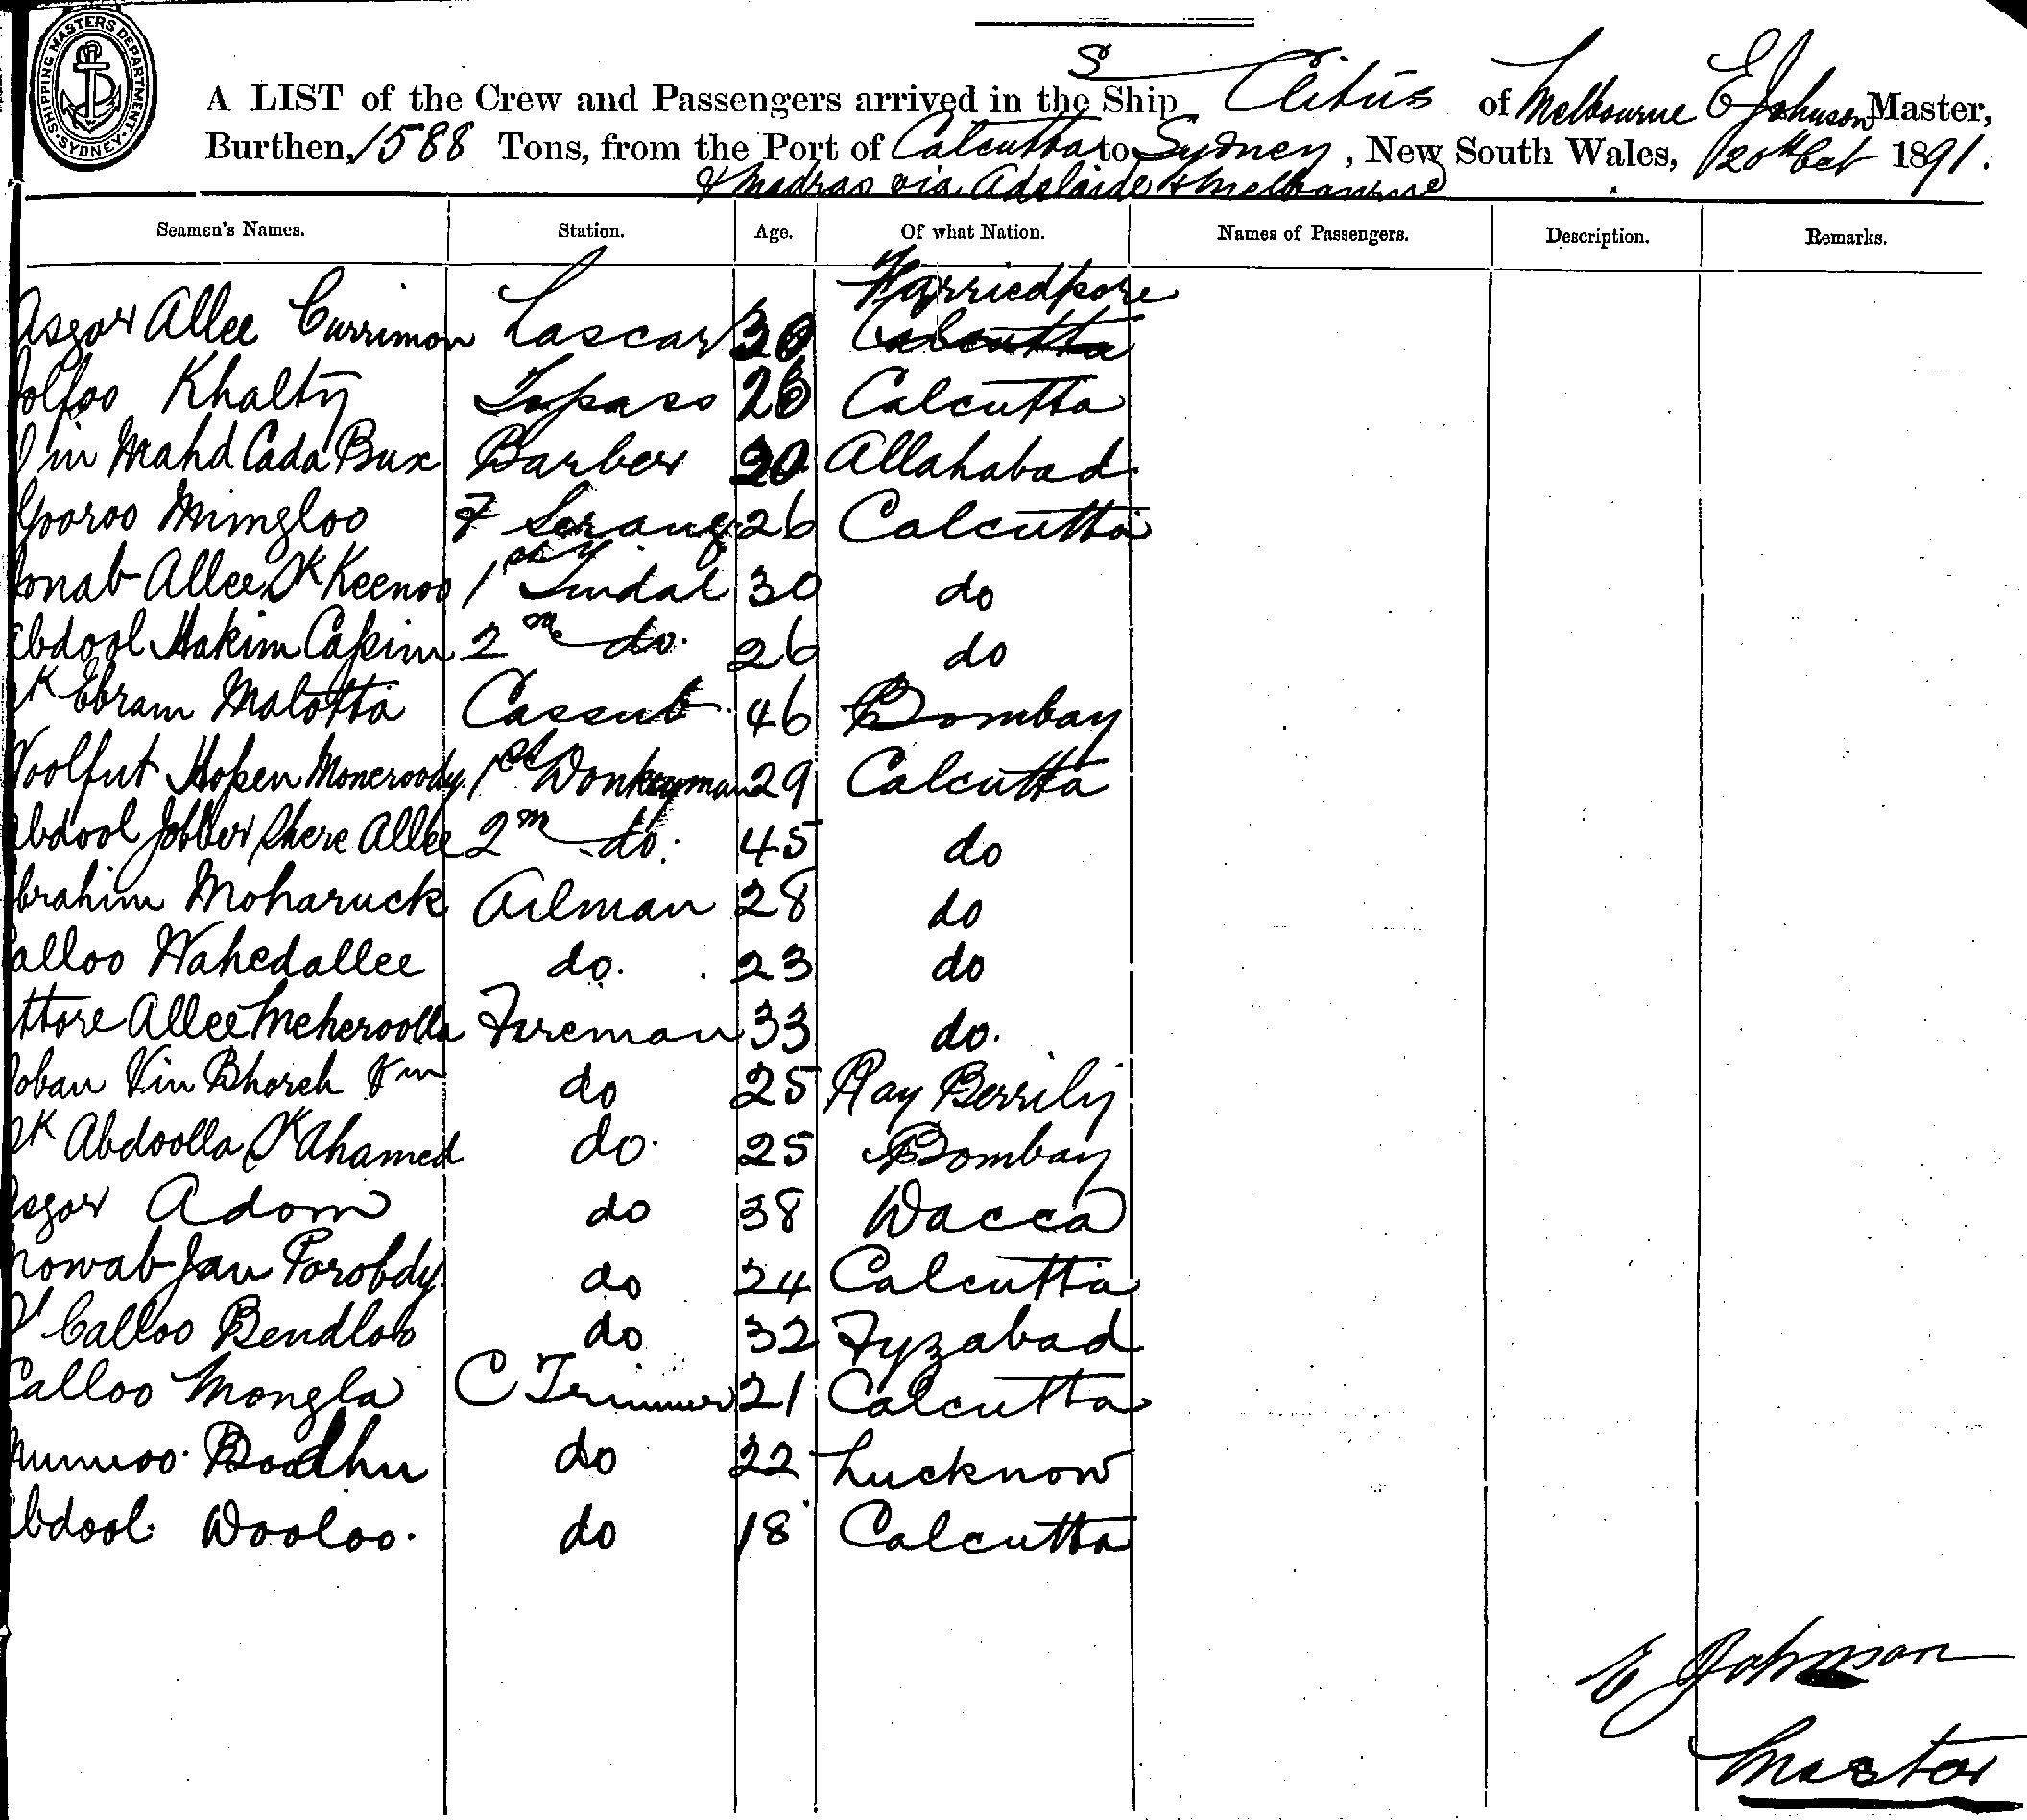 SHIPPING MASTERS DEPARTMENT. SYDNEY
S
A LIST of the Crew and Passengers arrived in the Ship Clitus of Melbourne E Johnson Master,
Burthen, 1588 Tons, from the Port of Calcutta to Sydney, New South Wales, 20th Oct 1891.
& Madras via Adelaide & Melbourne
Seamen's Names. Station. Age. Of what Nation. Names of Passengers. Description. Remarks.
Farriedpore
Asgar Allee Currimon Lascar 30 Calcutta
Khalty Topass 26 Calcutta
Mahd Cada Bux Barber 20 Allahabad
Gooroo Mungloo F Serang 26 Calcutta
Allee Sk Keenoo 1st Tindal 30 do
Abdool Hakim Cassim 2nd do. 26 do
Sk Ebram Malotta Cassub 46 Bombay
Woolfut Hosen Moneroody. 1st Donkeyman 29 Calcutta
Abdool Jobber Shere Allee 2nd do. 45 do
Ebrahim Moharuck Oilman 28 do
Calloo Wahedallee do. 23 do
Allee Meheroolla Fireman 33 do.
do 25 Ray Berrily
Sk Abdoolla Sk Ahamed do. 25 Bombay
Asgar Adom do 38 Dacca
Nowab Jan Porobdy do 24 Calcutta
Calloo Bendloo do 32 Fyzabad
Calloo Mongla C Trimmer 21 Calcutta
Bodhu do 22 Lucknow
Abdool Dooloo. do 18 Calcutta
E Johnson
Master